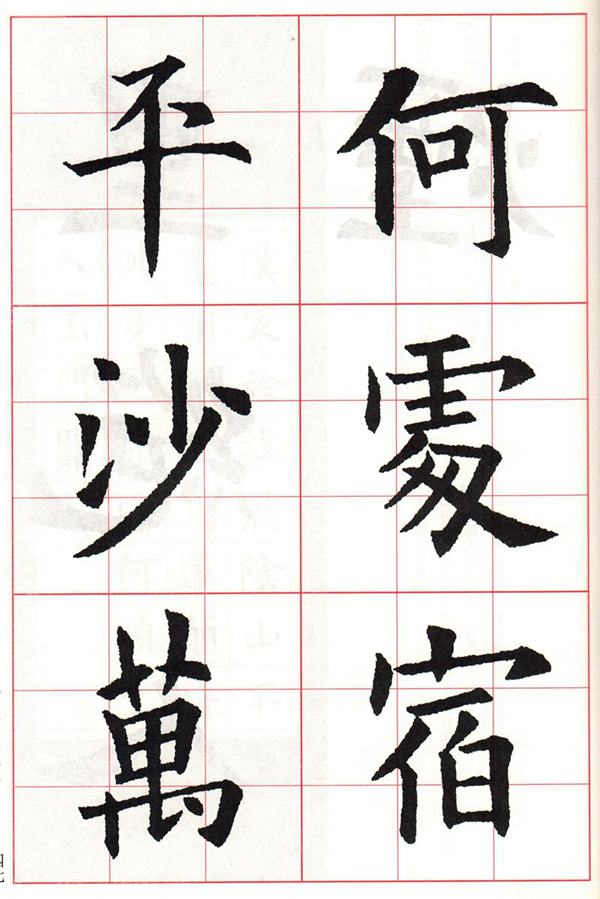 何處宿
平沙萬